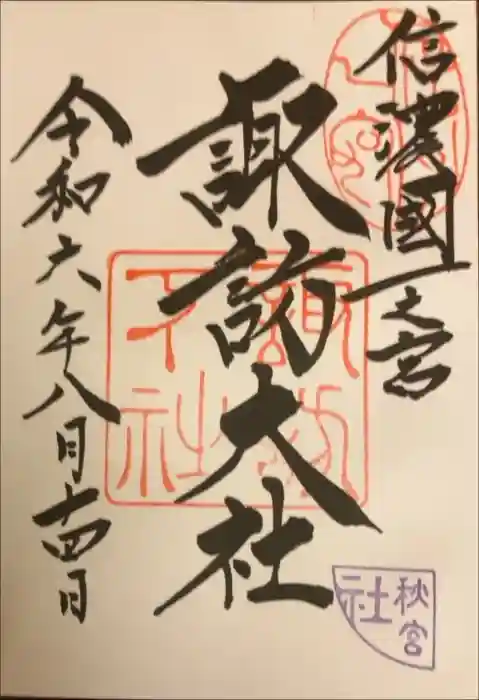 信濃國一之宮
諏訪大社
令和六年八月十四日
諏訪
下社
秋宮
社